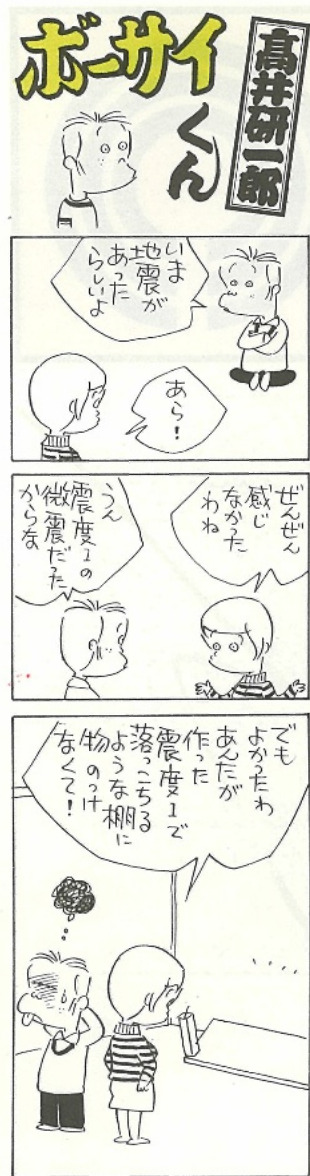 ボーサイ
くん
高井研一郎
いま
地震が
あった
らしいよ
あら！
ぜんぜん
感じ
なかった
わね
うん
震度1の
微震だった
からな
でも
よかったわ
あんたが
作った
震度1で
落っこちる
ような棚に
物のっけ
なくて！